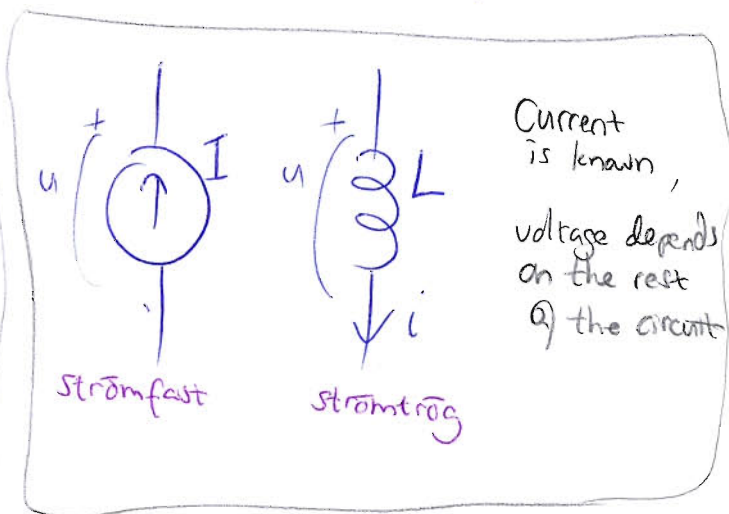 +
u
I
strömfast
+
u
L
i
strömtrög
Current
is known,
voltage depends
on the rest
of the circuit